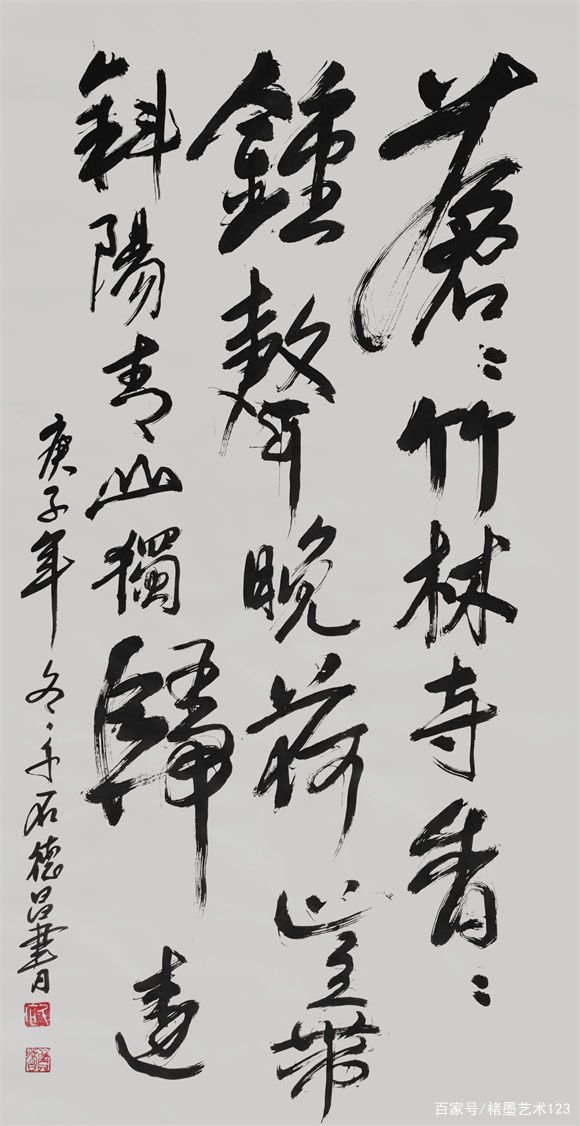 蒼々竹林寺杳々
鍾聲晚荷笠帶
斜陽青山獨歸遠
庚子年冬石德昌書
百家号/楮墨艺术123